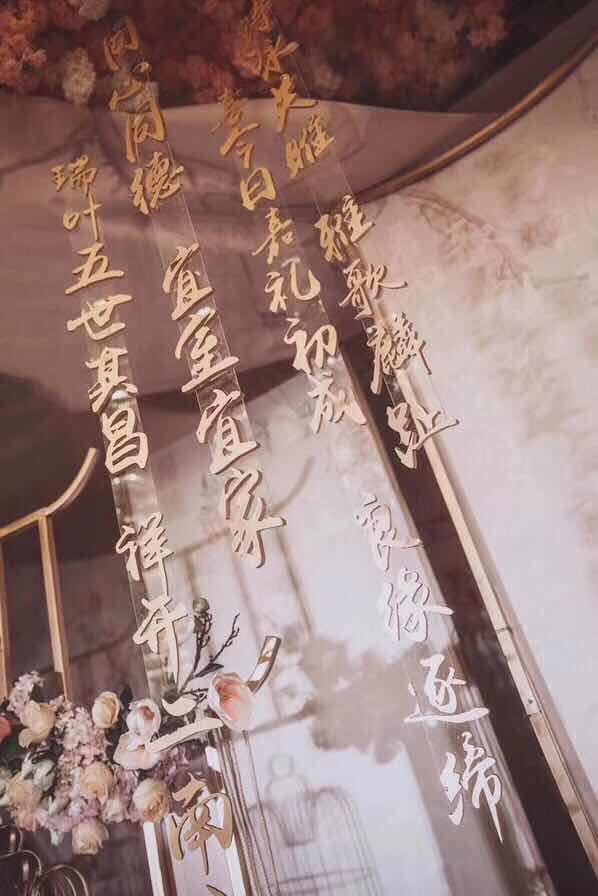 诗咏关雎 雅歌麟趾
喜今日嘉礼初成 良缘逐缔
同心同德 宜室宜家
瑞叶五世其昌 祥开二南